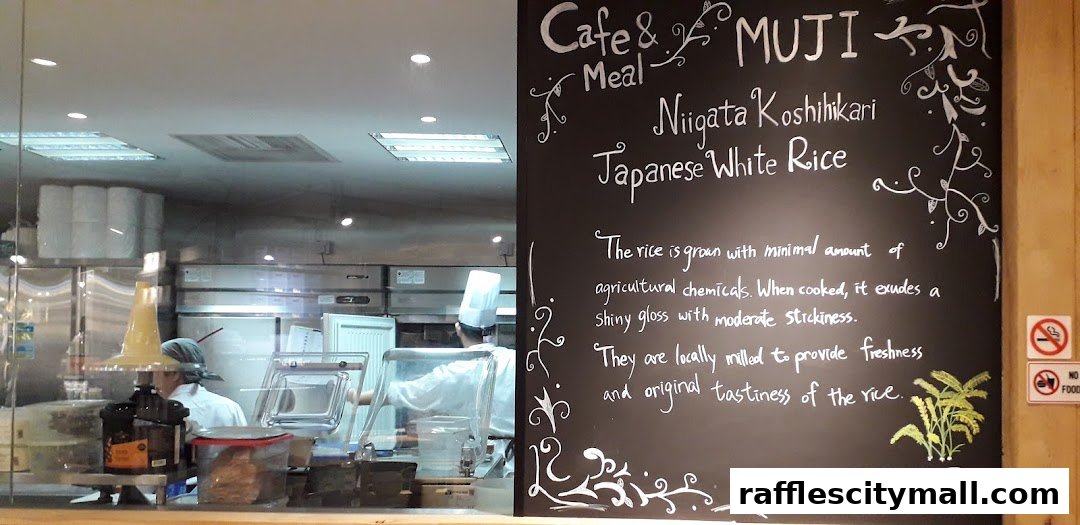 Cafe &
Meal
MUJI
Niigata Koshihikari
Japanese White Rice
The rice is grown with minimal amount of
agricultural chemicals. When cooked, it exudes a
shiny gloss with moderate stickiness.
They are locally milled to provide freshness
and original tastiness of the rice.
NO
FOOD
rafflescitymall.com